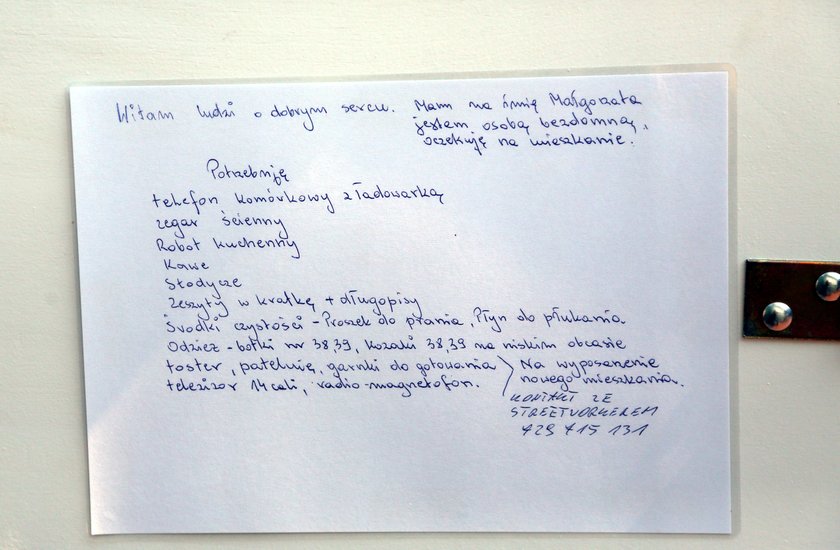 Witam ludzi o dobrym sercu. Mam na imię Małgorzata
jestem osobą bezdomną,
oczekuję na mieszkanie.
Potrzebuję
telefon komórkowy z ładowarką
zegar ścienny
Robot kuchenny
Kawe
Słodycze
Zeszyty w kratkę + długopisy
Środki czystości - Proszek do prania, Płyn do płukania.
Odzież - botki nr 38,39, kozaki 38,39 na niskim obcasie
toster, patelnię, garnki do gotowania
telezizor 14 cali, radio-magnetofon.
Na wyposarzenie
nowego mieszkania.
KONTAKT ZE
STREETWORKEREM
729 715 131